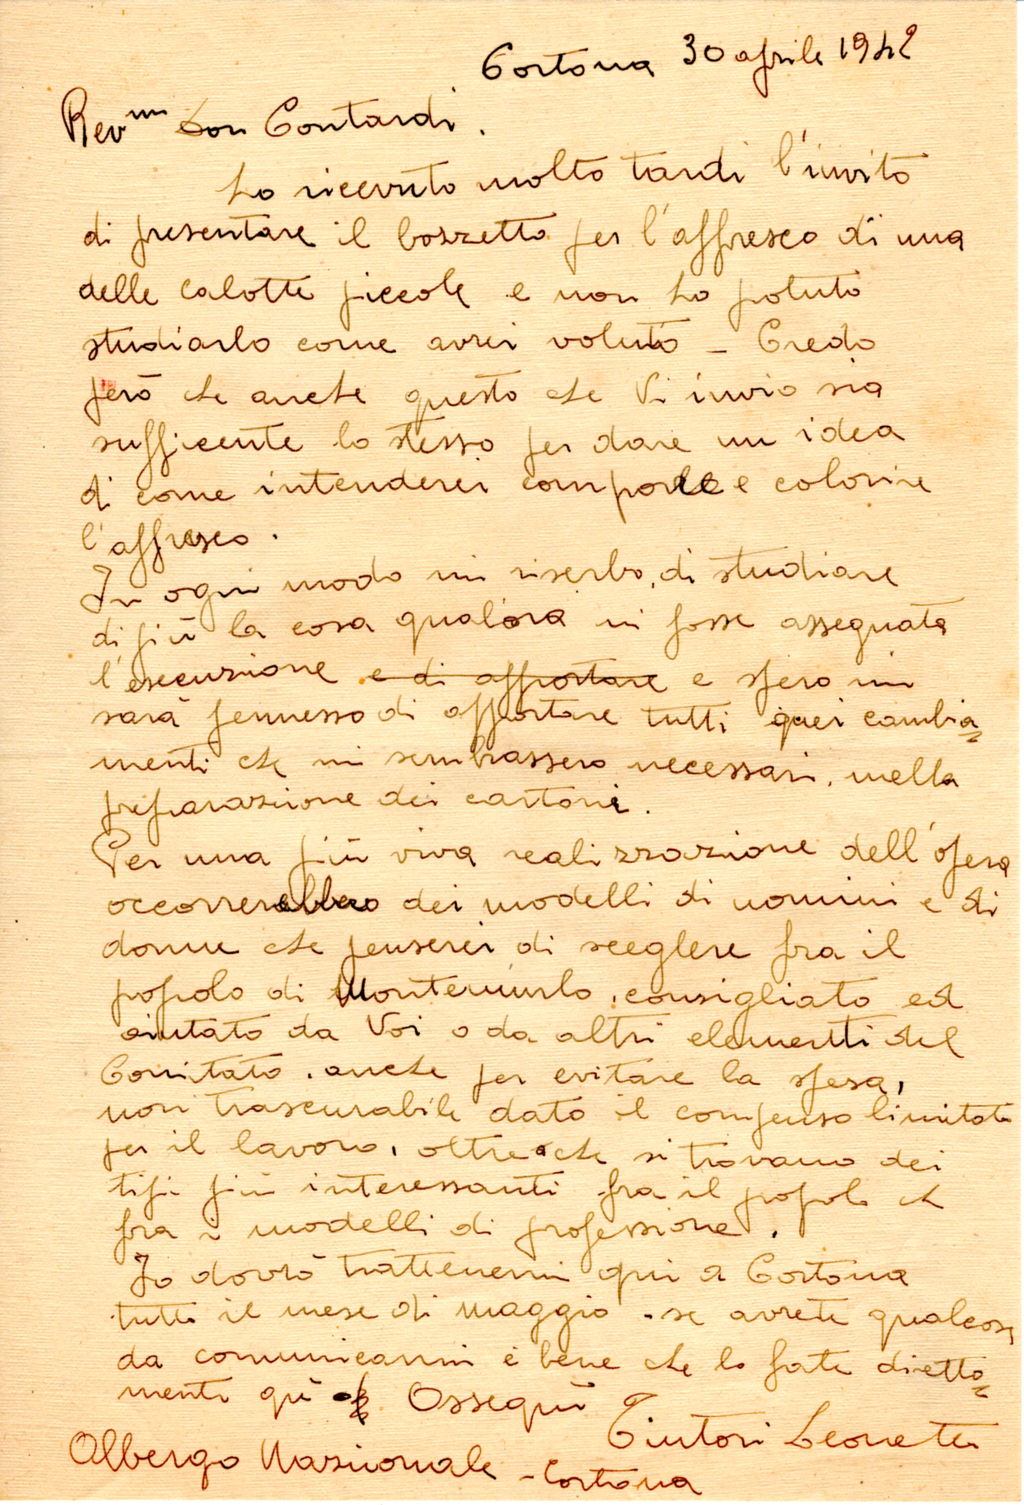 Cortona 30 aprile 1942
Rev.mo Don Contardi.
Ho ricevuto molto tardi l'invito
di presentare il bozzetto per l'affresco di una
delle calotte piccole e non ho potuto
studiarlo come avrei voluto – Credo
però che anche questo che Vi invio sia
sufficente lo stesso per dare un idea
di come intenderei comporre e colorire
l'affresco.
In ogni modo mi riserbo, di studiare
di più la cosa qualora mi fosse assegnata
l'esecuzione e di apportare e spero mi
sarà permesso di apportare tutti quei cambia=
menti che mi sembrassero necessari, nella
preparazione dei cartoni.
Per una più viva realizzazione dell'opera
occorrerebbero dei modelli di uomini e di
donne che penserei di sceglere fra il
popolo di Montemurlo, consigliato ed
aiutato da Voi o da altri elementi del
Comitato, anche per evitare la spesa,
non trascurabile dato il compenso limitato
per il lavoro, oltre che si trovano dei
tipi più interessanti fra il popolo che
fra i modelli di professione.
Io dovrò trattenermi qui a Cortona
tutto il mese di maggio, se avrete qualcosa
da comunicarmi è bene che lo fate diretta=
mente quì Ossequi
Tintori Leonetto
Albergo Nazionale – Cortona